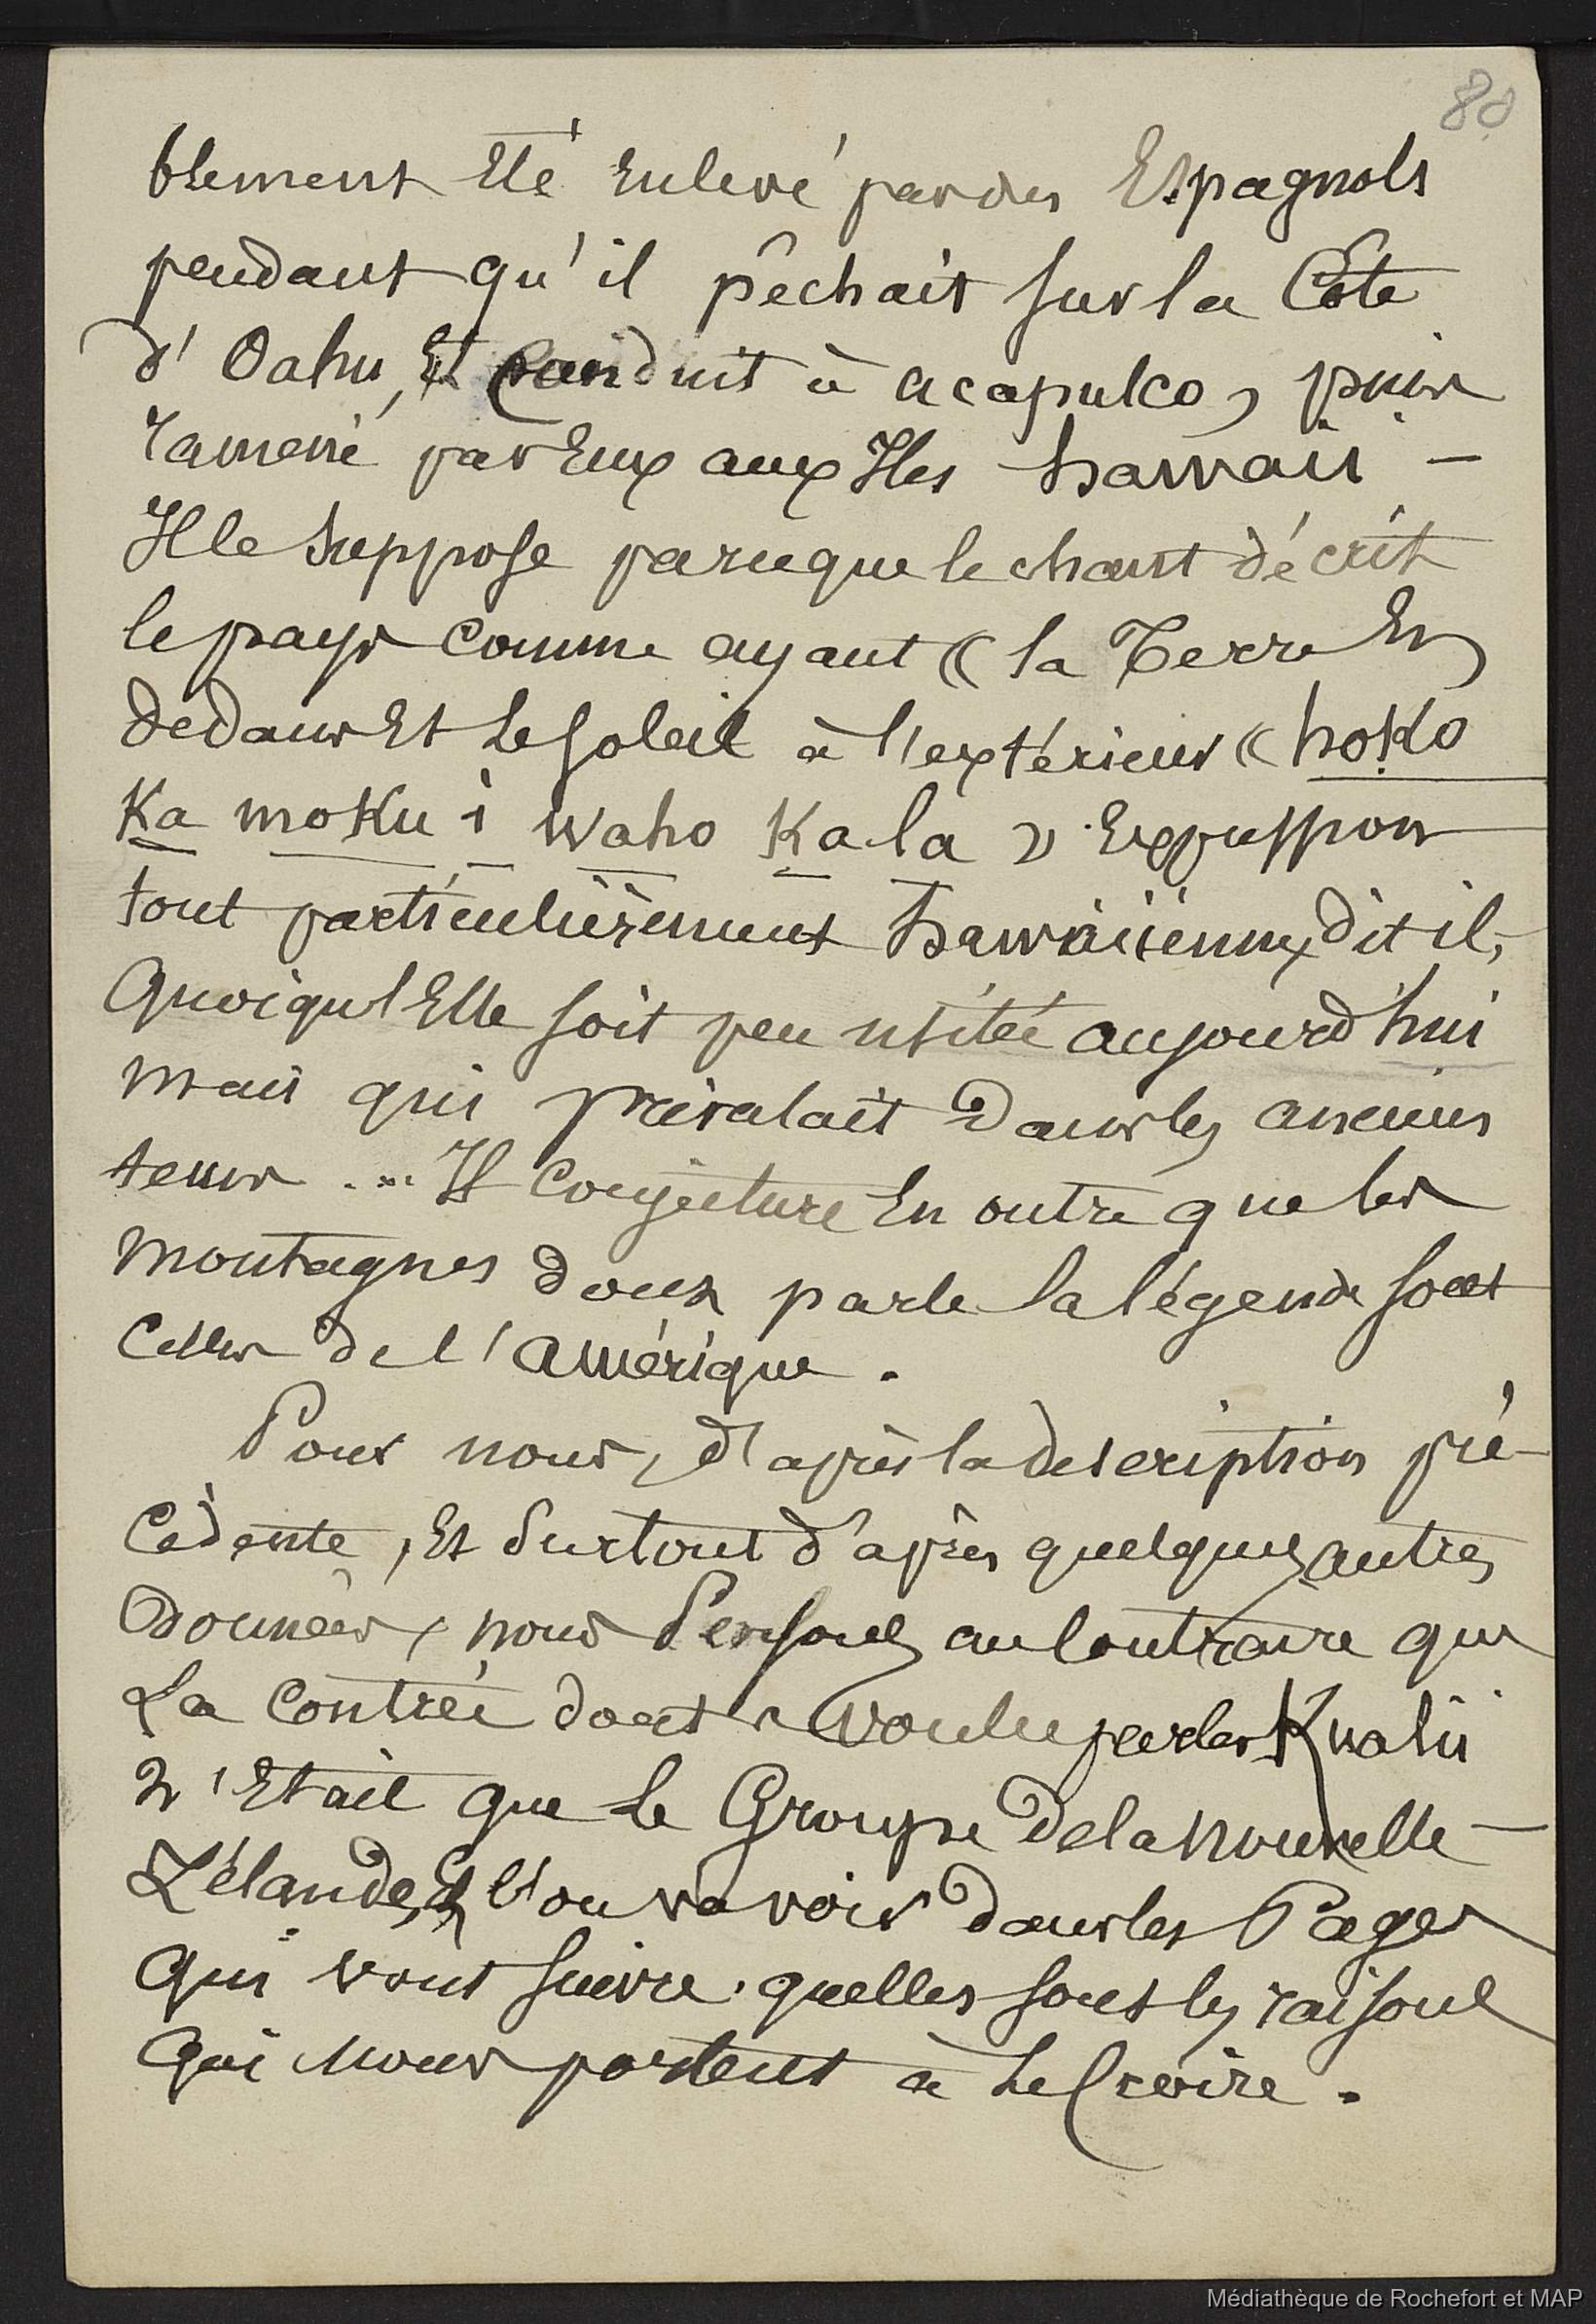 80
blement Eté Enlevé par des Espagnols
pendant qu'il pêchait sur la Côte
d'Oahu, Et Conduit à acapulco, puis
ramené par Eux aux Iles hawaii —
Il le suppose parceque le chant décrit
le pays comme ayant « la Terre En
dedans Et le soleil à l'extérieur « hoko
Ka moku i waho Ka la » Expression
tout particulièrement hawaiienne, dit il,
Quoiqu'Elle soit peu usitée aujourd'hui
mais qui prévalait dans les anciens
tems ... Il Conjecture En outre que les
montagnes dont parle la légende sont
Celles de l'amérique.
Pour nous, d'après la description pré-
cédente, Et surtout d'après quelques autres
données, nous Pensons au Contraire que
La Contrée dont a voulu parler Kualii
n'Etait que le Groupe de la nouvelle-
Zélande, Et l'on va voir dans les Pages
qui vont suivre quelles sont les raisons
qui nous portent à le Croire.
Médiathèque de Rochefort et MAP